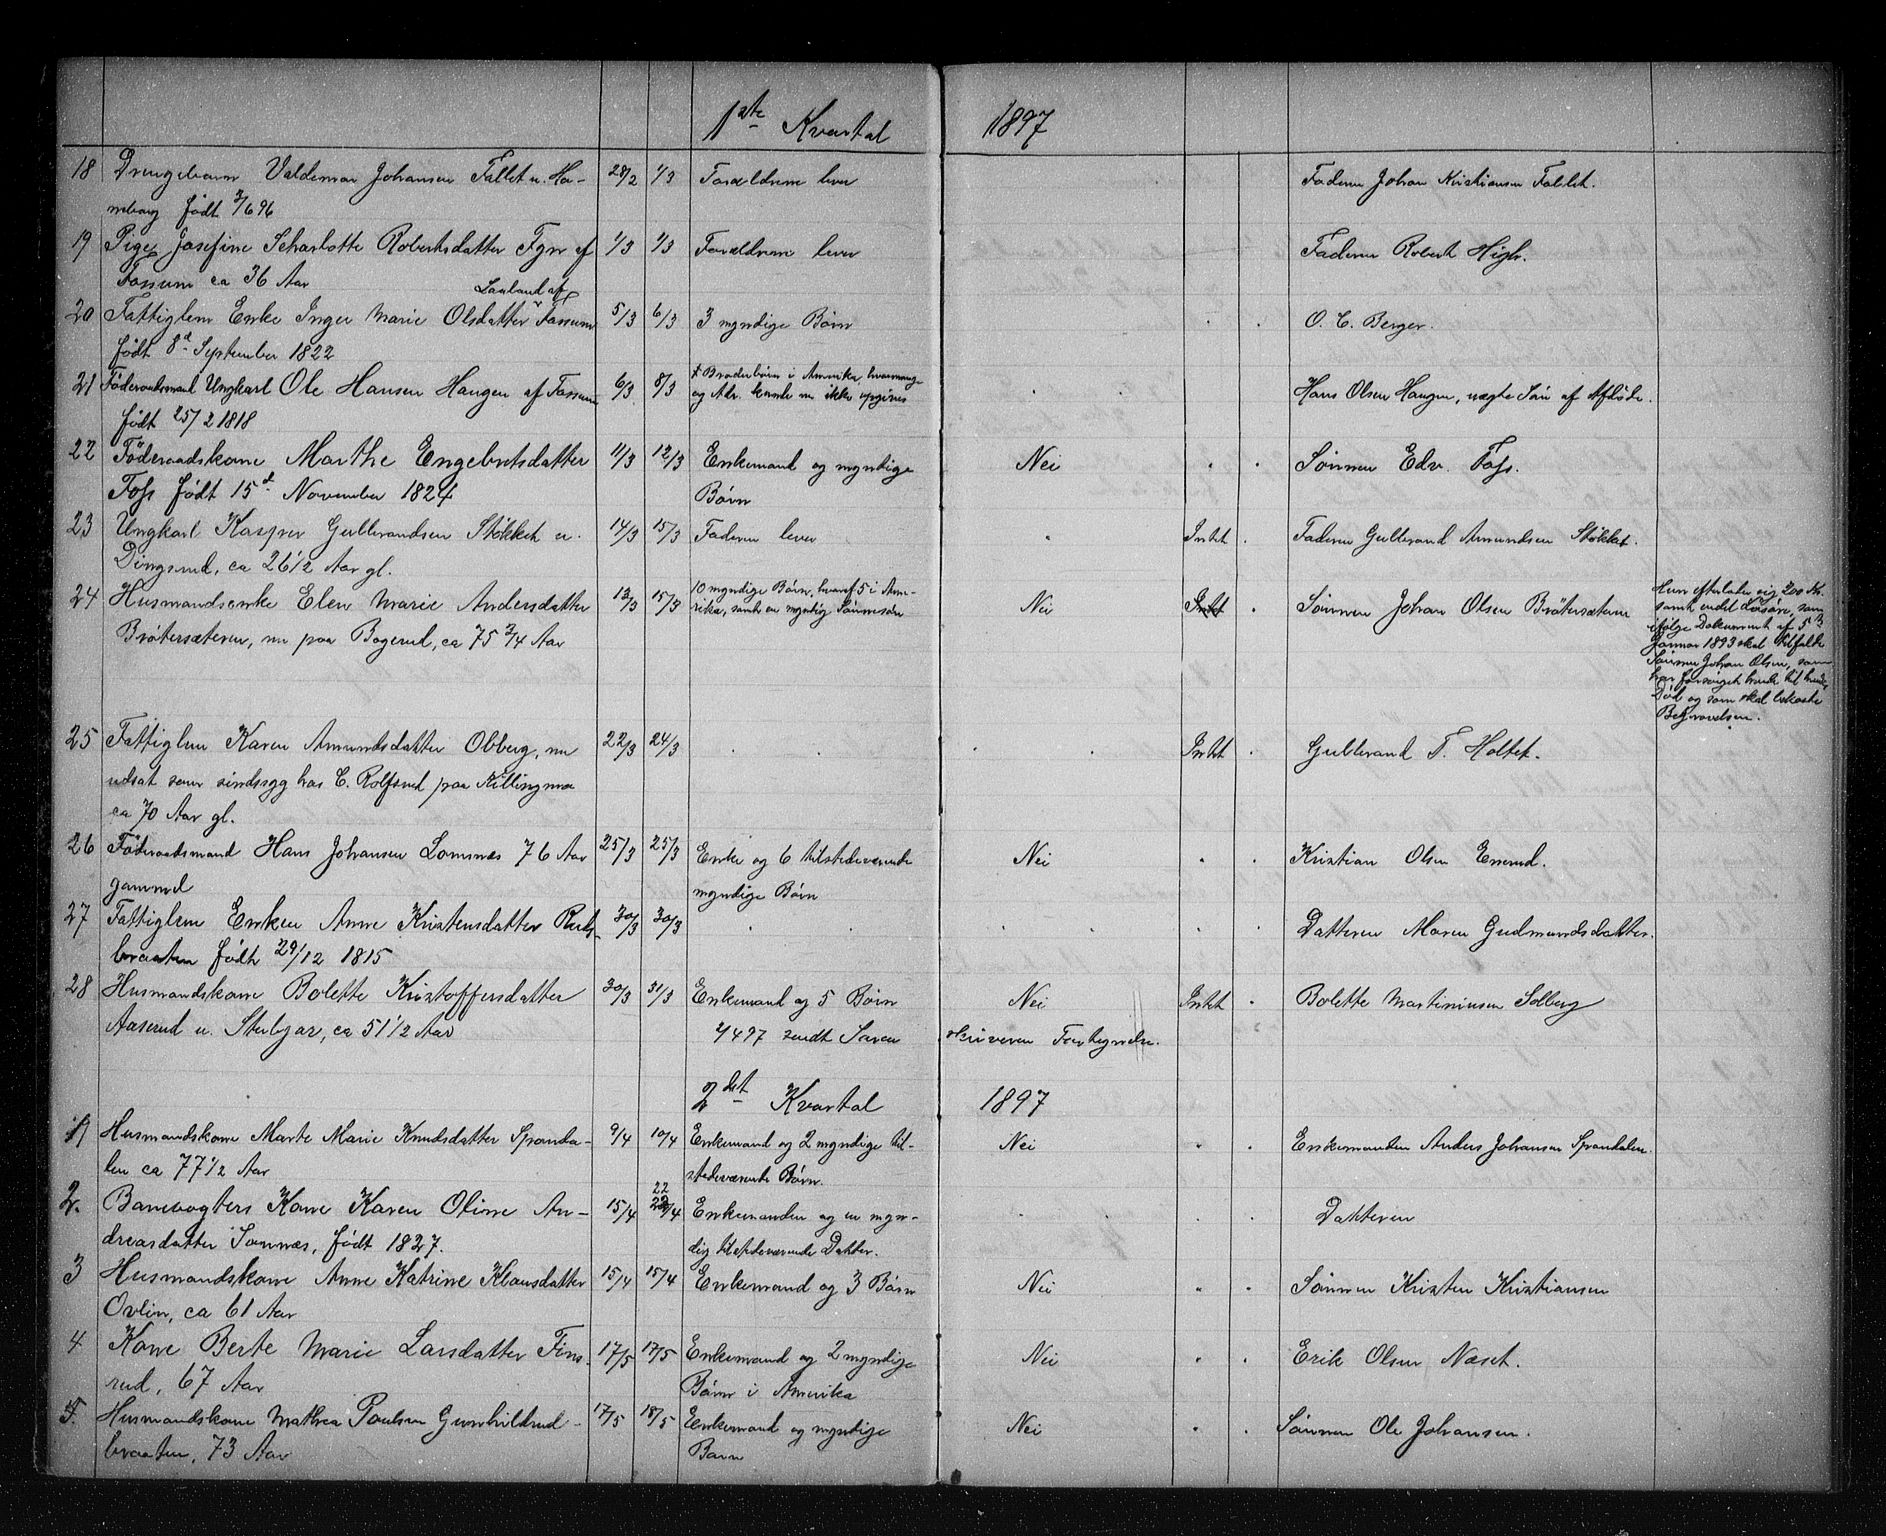 1ste Kvartal 1897
18 Drengebarn Valdemar Johansen Fallet u. Ha- 28/2 1/3 Forældrene lever Faderen Johan Kristiansen Fallet.
neborg født 3/6 96
19 Pige Josefine Scharlotte Robertsdatter Fgn af 1/3 1/3 Forældrene lever Faderen Robert High.
Fossum ca 36 Aar
Laaland af
20 Fattiglem Enke Inger Marie Olsdatter Fossum 5/3 6/3 3 myndige Børn " " O. C. Berger.
født 8d September 1822
21 Føderaadsmand Ungkarl Ole Hansen Haugen af Fossum 6/3 8/3 7 Broderbørn i Amerika, hvis mange " " Hans Olsen Haugen, uægte Søn af Afdøde.
og Adr. kunde nu ikke opgives
født 25/2 1818
22 Føderaadskone Marthe Engebretsdatter 11/3 12/3 Enkemand og myndige Nei " " Sønnen Edv. Foss.
Foss født 15d November 1824 Børn
23 Ungkarl Kasper Gulbrandsen Støkket u. 14/3 15/3 Faderen lever " Intet " Faderen Gulbrand Amundsen Støkket.
Dingsrud, ca 26 1/2 Aar gl.
24 Husmandsenke Elen Marie Andersdatter 13/3 15/3 10 myndige Børn, hvoraf 5 i Ame- Nei Intet " Sønnen Johan Olsen Brøtersæteren
rika, samt en myndig Sønnesøn
Brøtersæteren, nu paa Bogerud, ca 75 3/4 Aar
Hun efterlader sig 200 Kr.
samt endel Løsøre, som
ifølge Dokument af 5te
Januar 1893 skal tilfalde
Sønnen Johan Olsen, som
har forsørget hende til hendes
Død og som skal bekoste
Begravelsen.
25 Fattiglem Karen Amundsdatter Obberg, nu 22/3 24/3 " " " Intet " Gulbrand T. Holtet.
udsat som sindssyg hos C. Rolfsrud paa Killingmo
ca 70 Aar gl.
26 Føderaadsmand Hans Johansen Lomsnæs 76 Aar 25/3 25/3 Enke og 6 tilstedeværende Nei " " Kristian Olsen Enerud.
gammel myndige Børn
27 Fattiglem Enken Anne Kristensdatter Ruds- 30/3 30/3 " " " " " Datteren Maren Gudmundsdatter.
braaten født 29/12 1815
28 Husmandskone Bolette Kristoffersdatter 30/3 31/3 Enkemand og 5 Børn Nei Intet " Bolette Martiniusen Solberg
Aaserud u. Stubjar, ca 51 1/2 Aar 2/4 97 sendt Soren skriveren Fortegnelse.
2det Kvartal 1897
1 Husmandskone Marte Marie Knudsdatter Spanda- 9/4 10/4 Enkemand og 2 myndige til- Nei " " Enkemanden Anders Johansen Spandalen.
len ca 77 1/2 Aar stedeværende Børn.
2. Banevogters Kone Karen Oline An- 15/4 22/4 Enkemanden og en myn- " " " Datteren
dreasdatter Sonnæs, født 1827. dig tilstedeværende Datter.
3 Husmandskone Anne Katrine Klausdatter 15/4 15/4 Enkemand og 3 Børn Nei " " Sønnen Kristen Kristiansen
Ovlien, ca 61 Aar
4 Kone Berte Marie Larsdatter Fins- 17/5 17/5 Enkemand og 2 myndige Nei " " Erik Olsen Næset.
rud, 67 Aar Børn i Amerika
5. Husmandskone Mathea Paulsen Gunhildrud- 17/5 18/5 Enkemand og myndige Nei " " Sønnen Ole Johansen.
braaten, 73 Aar Børn